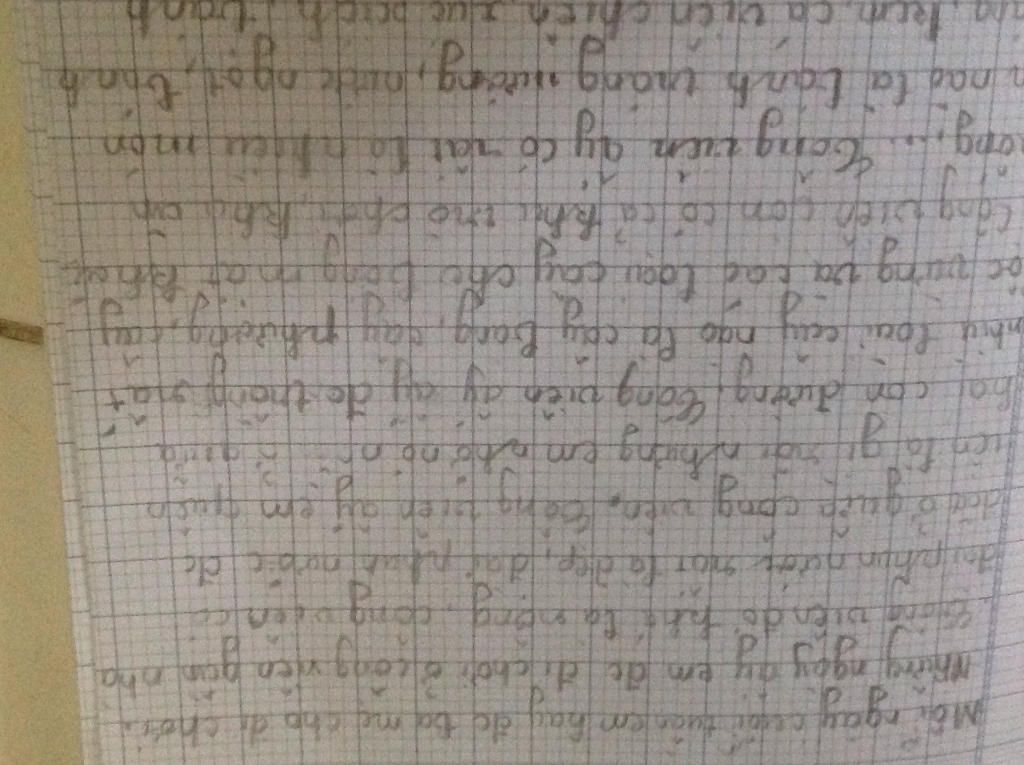 Mỗi ngày cuối tuần em hay đc ba mẹ cho đi chơi.
Những ngày ấy em đc đi chơi ở công viên gần nhà
Công viên đó khá là rộng, công viên có
đài phun nước rất là đẹp, đài phun nước đc
đặt ở giữa công viên. Công viên ấy em quên
tên là gì rồi nhưng em nhớ nó nằm ở giữa
hai con đường. Công viên ấy để trồng rất
như loại cây nào là cây bàng, cây phượng, cây
ốc vừng và các loại cây cho bóng mát khác
Công viên còn có cả khu trò chơi, khu ăn
ống,... Công viên ấy có rất là nhiều món
n nào là bánh tráng nướng, nước ngọt, thanh
kem, cá viên chiên, xúc xích, bánh